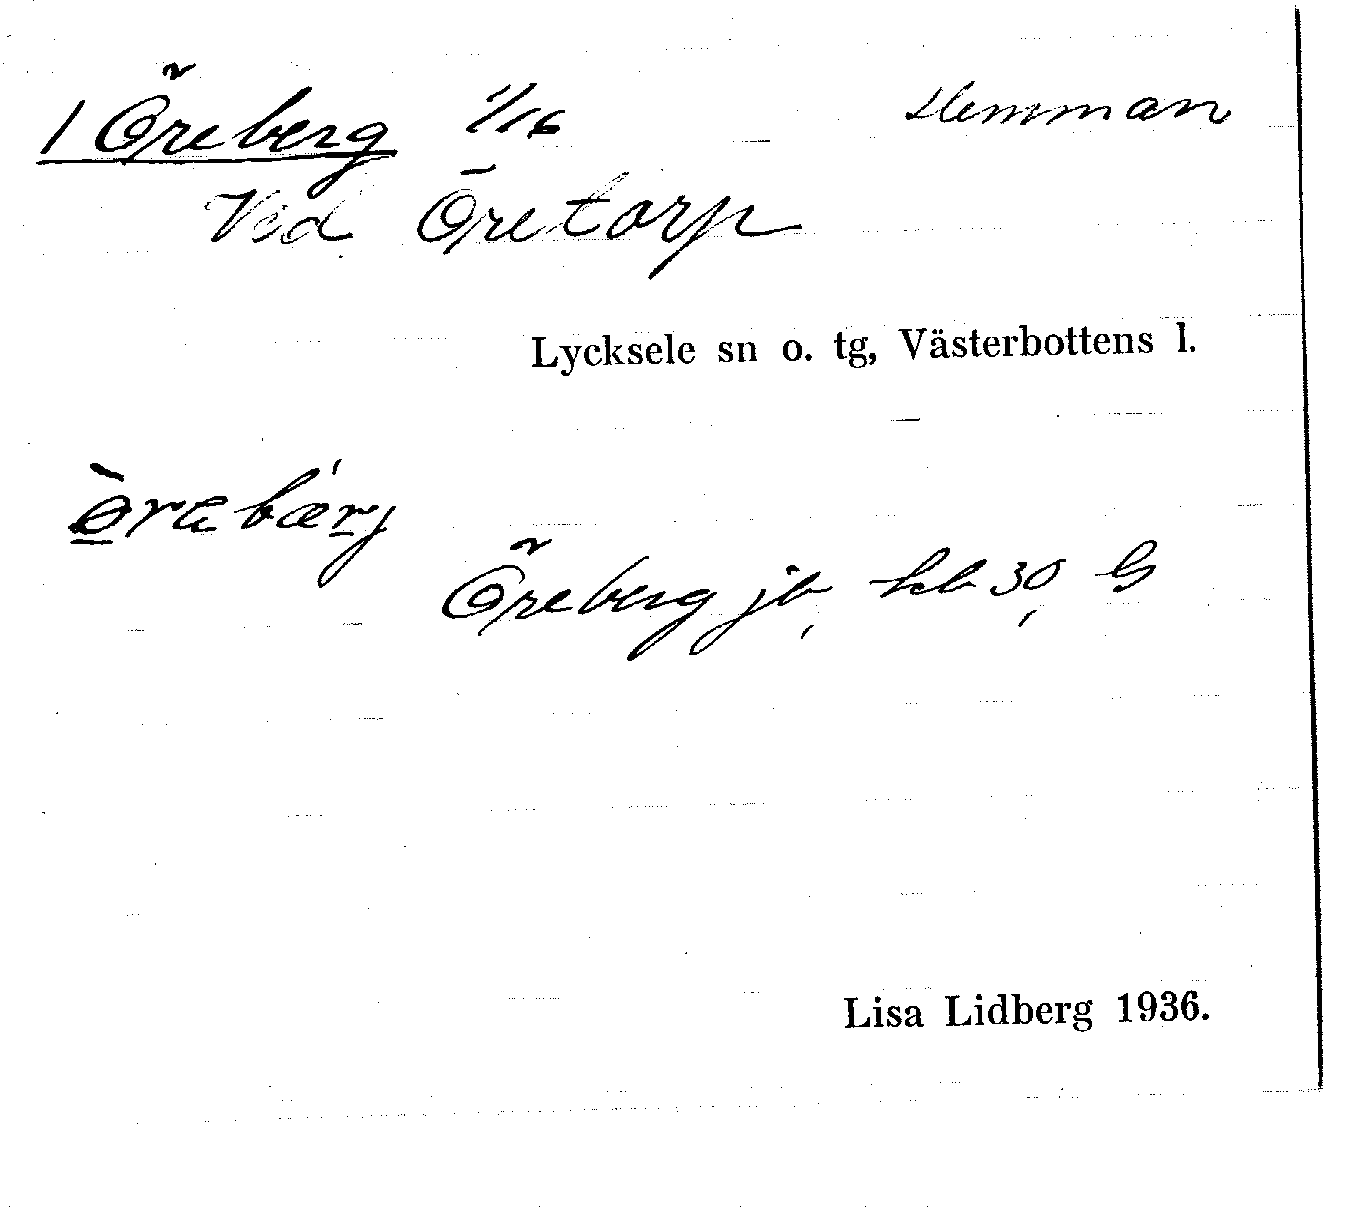 1 Öreberg 1/16 Hemman
Vid Öretorp
Lycksele sn o. tg, Västerbottens l.
Öreberg jb, kb 30, G
Lisa Lidberg 1936.